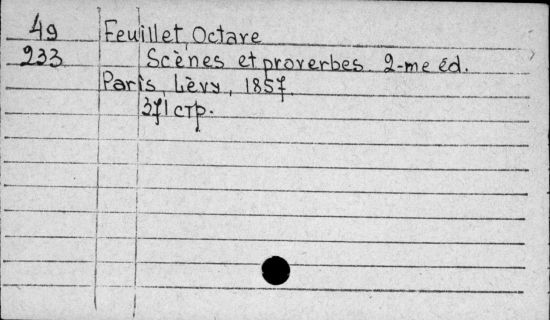 49 Feuillet, Octave
233 Scènes et proverbes 2-me éd.
Paris, Lèvy, 1857.
371 стр.